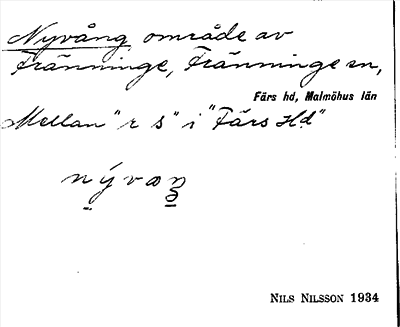 Nyvång, område av
Fränninge, Fränninge sn,
Färs hd, Malmöhus län
Mellan "r s" i "Färs Hd"
NILS NILSSON 1934